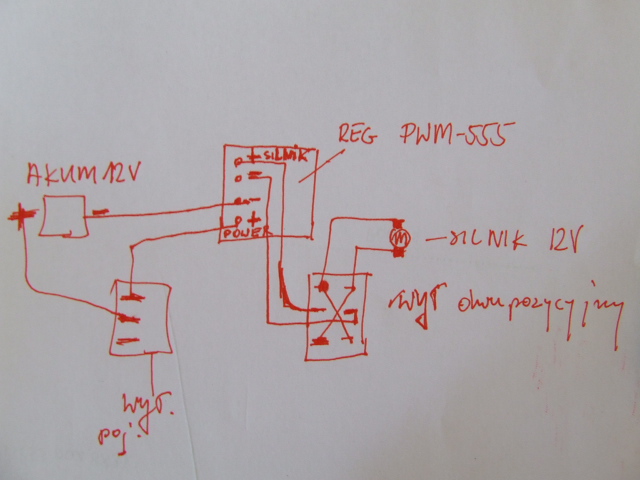 REG PWM-555
AKUM 12V
+ -
+ SILNIK
-
-
+
POWER
M
- SILNIK 12V
wył dwupozycyjny
wył.
poj.